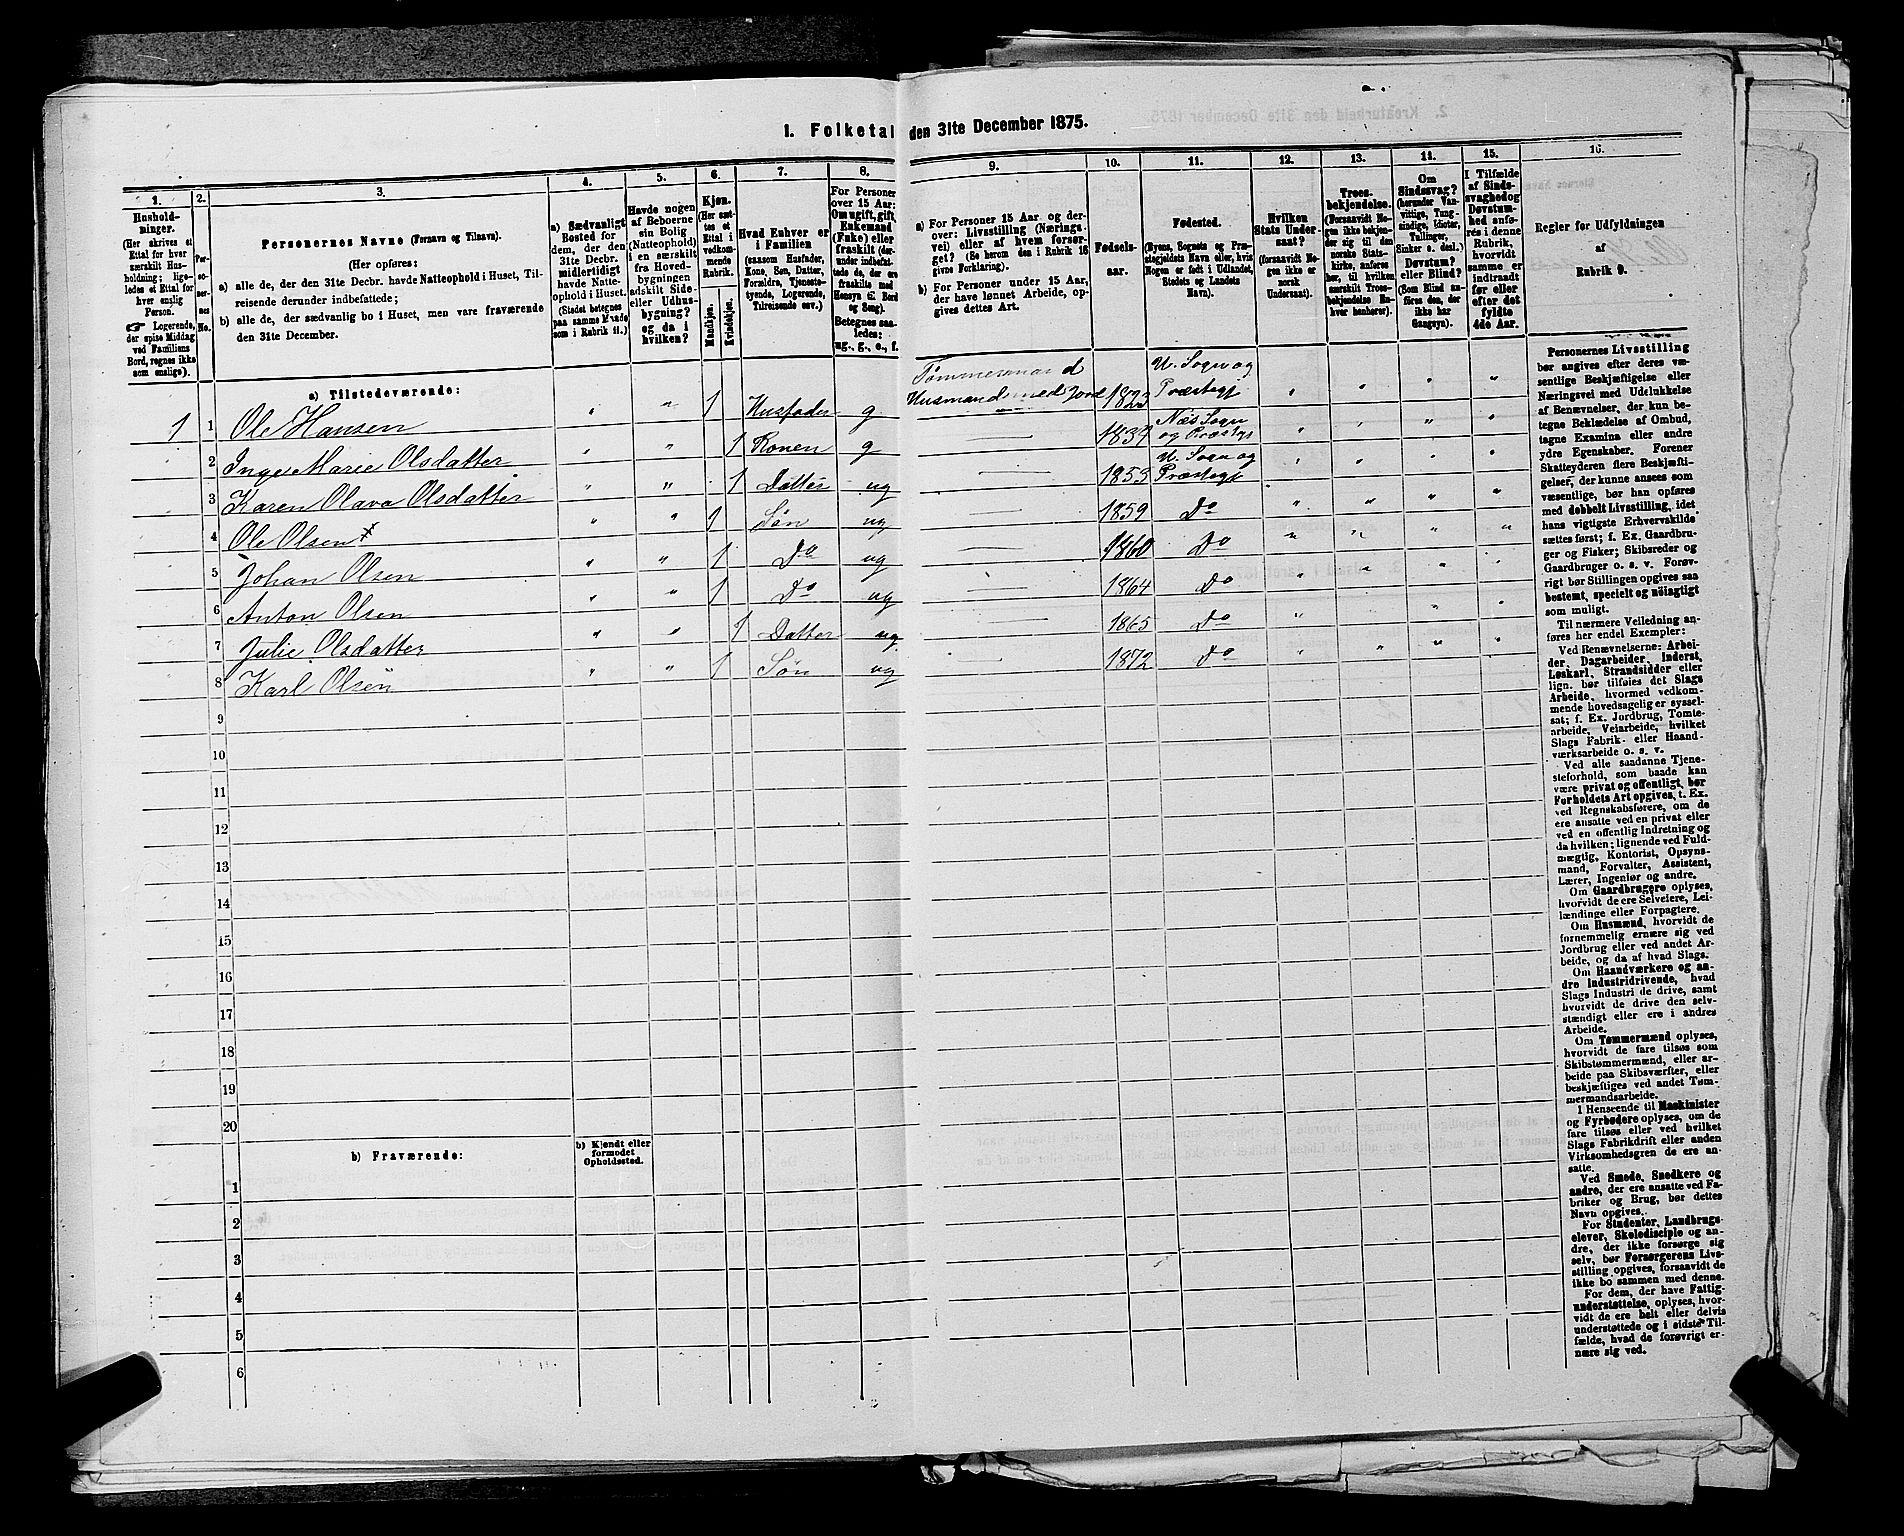 1. Folketal den 31te December 1875.
1. 2. 3. 4. 5. 6. 7. 8. 9. 10. 11. 12. 13. 14. 15. 16.
Husholdninger.
(Her skrives et
Ettal for hver
særskilt Husholdning;
ligeledes et Ettal for
hver enslig
Person.
☞ Logerende,
der spise Middag
ved Familiens
Bord, regnes ikke
som enslige).
Personernes No.
Personernes Navne (Fornavn og Tilnavn).
(Her opføres:
a) alle de, der den 31te Decbr. havde Natteophold i Huset, Tilreisende
derunder indbefattede;
b) alle de, der sædvanlig bo i Huset, men vare fraværende
den 31te December.
a) Sædvanligt
Bosted for
dem, der den
31te Decbr.
midlertidigt
havde Natteophold
i Huset.
(Stedet betegnes
paa samme Maade
som i Rubrik 11.)
Havde nogen
af Beboerne
sin Bolig
(Natteophold)
i en særskilt
fra Hovedbygningen
adskilt Side-
eller Udhusbygning?
og da i
hvilken?
Kjøn.
(Her sættes
et
Ettal i
vedkommende
Rubrik.
Mandkjøn.
Kvindekjøn.
Hvad Enhver er
i Familien
(saasom Husfader,
Kone, Søn, Datter,
Forældre, Tjenestetyende,
Logerende,
Tilreisende osv.)
For Personer
over 15 Aar:
Om ugift, gift,
Enkemand
(Enke) eller
fraskilt (derunder
indbefattede
de, der ere
fraskilte med
Hensyn til Bord
og Seng).
Betegnes saaledes:
ug., g., e., f.
a) For Personer 15 Aar og derover:
Livsstilling (Næringsvei)
eller af hvem forsørget?
(Se herom den i Rubrik 16
givne Forklaring).
b) For Personer under 15 Aar,
der have lønnet Arbeide, opgives
dettes Art.
Fødselsaar.
Fødested.
(Byens, Sognets og Præstegjeldets
Navn eller, hvis
Nogen er født i Udlandet,
Stedets og Landets
Navn).
Hvilken
Stats Undersaat?
(forsaavidt Nogen
ikke er
norsk
Undersaat).
Troesbekjendelse.
(Forsaavidt Nogen
ikke bekjender
sig til den
norske Statskirke,
anføres
her, til hvilken
særskilt Troesbekjendelse
Enhver
henhører).
Om
Sindssvag?
(herunder Vanvittige,
Tungsindige,
Idioter,
Tullinger,
Sinker o. desl.)
Døvstum?
eller Blind? (Som
Blind anføres
den, der
ikke har
Gangsyn).
I Tilfælde
af Sindssvaghed
og
Døvstumhed
anføres
i denne
Rubrik,
hvorvidt
samme er
indtraadt
før eller
efter det
fyldte
4de Aar.
Regler for Udfyldningen
af
Rubrik 9.
a) Tilstedeværende:
1 1 Ole Hansen " " 1 Husfader g Tømmermand Husmand med Jord 1823 U. Sogn og Præstegj " " " "
2 Inge Marie Olsdatter " " 1 Konen g 1837 Næs Sogn og Præstgj " " " "
3 Karen Olava Olsdatter " " 1 Datter ug 1853 U. Sogn og Præstegj " " " "
4 Ole Olsen " " 1 Søn ug 1859 Do " " " "
5 Johan Olsen " " 1 Do ug 1860 Do " " " "
6 Anton Olsen " " 1 Do ug 1864 Do " " " "
7 Julie Olsdatter " " 1 Datter ug 1865 Do " " "
8 Karl Olsen " " 1 Søn ug 1872 Do " " " "
9
10
11
12
13
14
15
16
17
18
19
20
b) Fraværende:
b) Kjendt eller
formodet
Opholdssted.
1
2
3
4
5
6
Personernes Livsstilling
bør angives efter deres væsentlige
Beskjæftigelse eller
Næringsvei med Udelukkelse
af Benævnelser, der kun betegne
Beklædelse af Ombud,
tagne Examina eller andre
ydre Egenskaber. Forener
Skatteyderen flere Beskjæftigelser,
der kunne ansees som
væsentlige, bør han opføres
med dobbelt Livsstilling, idet
hans vigtigste Erhvervskilde
sættes først; f. Ex. Gaardbruger
og Fisker; Skibsreder og
Gaardbruger o. s. v. Forøvrigt
bør Stillingen opgives saa
bestemt, specielt og nöiagtigt
som muligt.
Til nærmere Veiledning anføres
her endel Exempler:
Ved Benævnelserne: Arbeider,
Dagarbeider, Inderst,
Løskarl, Strandsidder eller
lign. bør tilføies det Slags
Arbeide, hvormed vedkommende
hovedsagelig er sysselsat;
f. Ex. Jordbrug, Tomtearbeide,
Veiarbeide, hvilket
Slags Fabrik- eller Haandværksarbeide
o. s. v.
Ved alle saadanne Tjenesteforhold,
som baade kan
være privat og offentligt, bør
Forholdets Art opgives, t. Ex.
ved Regnskabsførere, om de
ere ansatte ved en privat eller
ved en offentlig Indretning og
da hvilken; lignende ved Fuldmægtig,
Kontorist, Opsynsmand,
Forvalter, Assistent,
Lærer, Ingeniør og andre.
Om Gaardbrugere oplyses,
hvorvidt de ere Selveiere, Leilændinge
eller Forpagtere.
Om Husmænd, hvorvidt de
fornemmelig ernære sig ved
Jordbrug eller ved andet Arbeide,
og da af hvad Slags.
Om Haandværkere og andre
Industridrivende, hvad
Slags Industri de drive, samt
hvorvidt de drive den selvstændigt
eller ere i andres
Arbeide.
Om Tømmermænd oplyses,
hvorvidt de fare tilsøs som
Skibstømmermænd, eller arbeide
paa Skibsværfter, eller
beskjæftiges ved andet Tømmermandsarbeide.
I Henseende til Maskinister
og Fyrbødere oplyses, om de
fare tilsøs eller ved hvilket
Slags Fabrikdrift eller anden
Virksomhedsgren de ere ansatte.
Ved Smede, Snedkere og
andre, der ere ansatte ved Fabriker
og Brug, bør dettes
Navn opgives.
For Studenter, Landbrugselever,
Skoledisciple og andre,
der ikke forsørge sig
selv, bør Forsørgerens Livsstilling
opgives, forsaavidt de
ikke bo sammen med denne.
For dem, der have Fattigunderstøttelse,
oplyses, hvorvidt
de ere helt eller delvis
understøttede og i sidste Tilfælde,
hvad de forøvrigt ernære
sig ved.